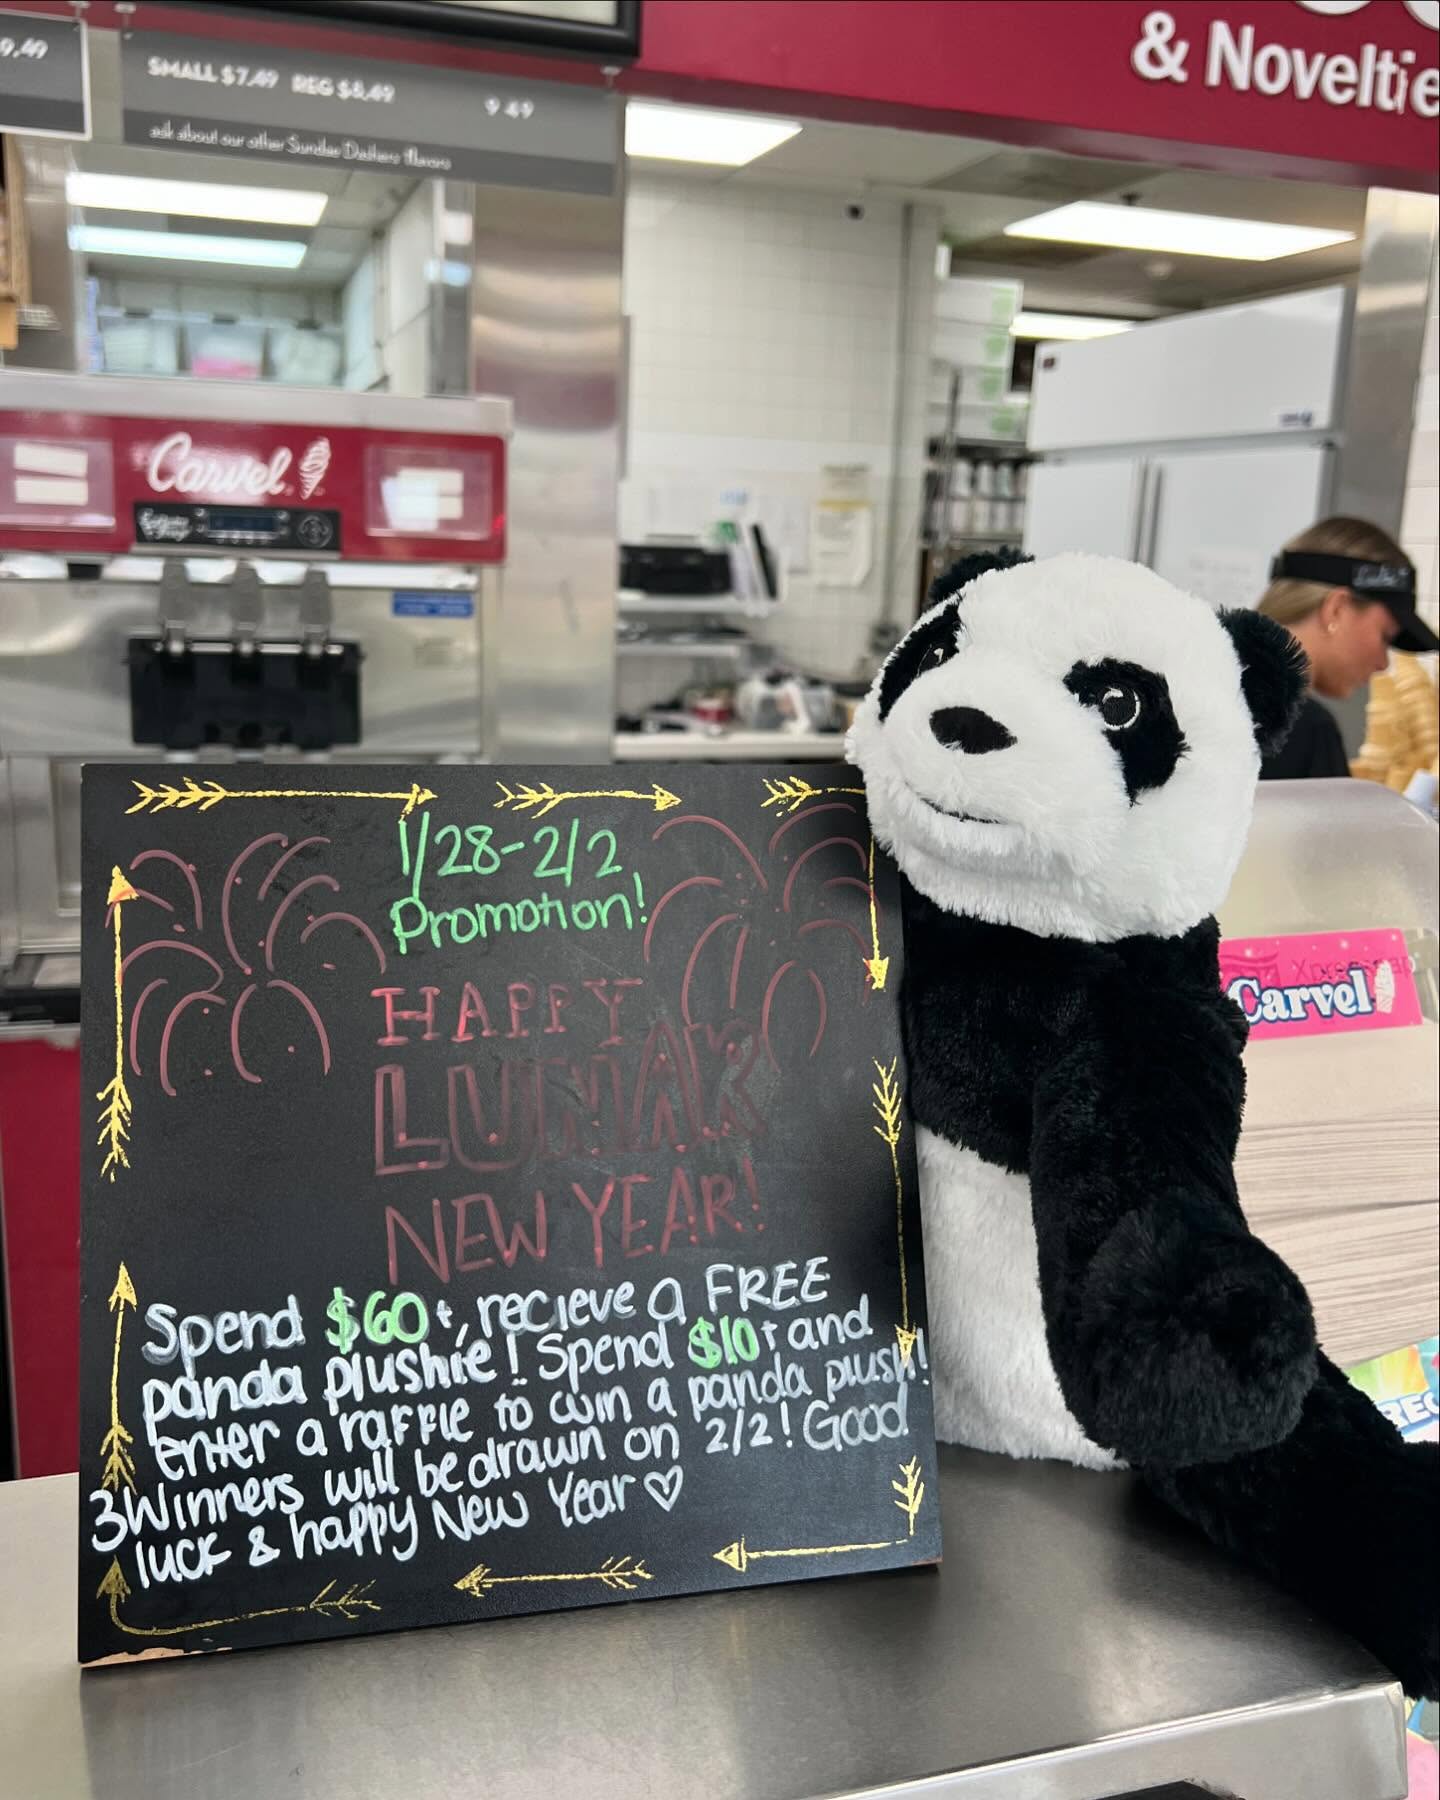 & Noveltie
9.49
SMALL $7.49 REG $8.49 9 49
ask about our other Sundae Dashers flavors
Carvel
1/28-2/2
Promotion!
HAPPY
LUNAR
NEW YEAR!
Spend $60+, recieve a FREE
panda plushie! Spend $10+ and
enter a raffle to win a panda plush!
3 Winners will be drawn on 2/2! Good
luck & happy New Year
Carvel